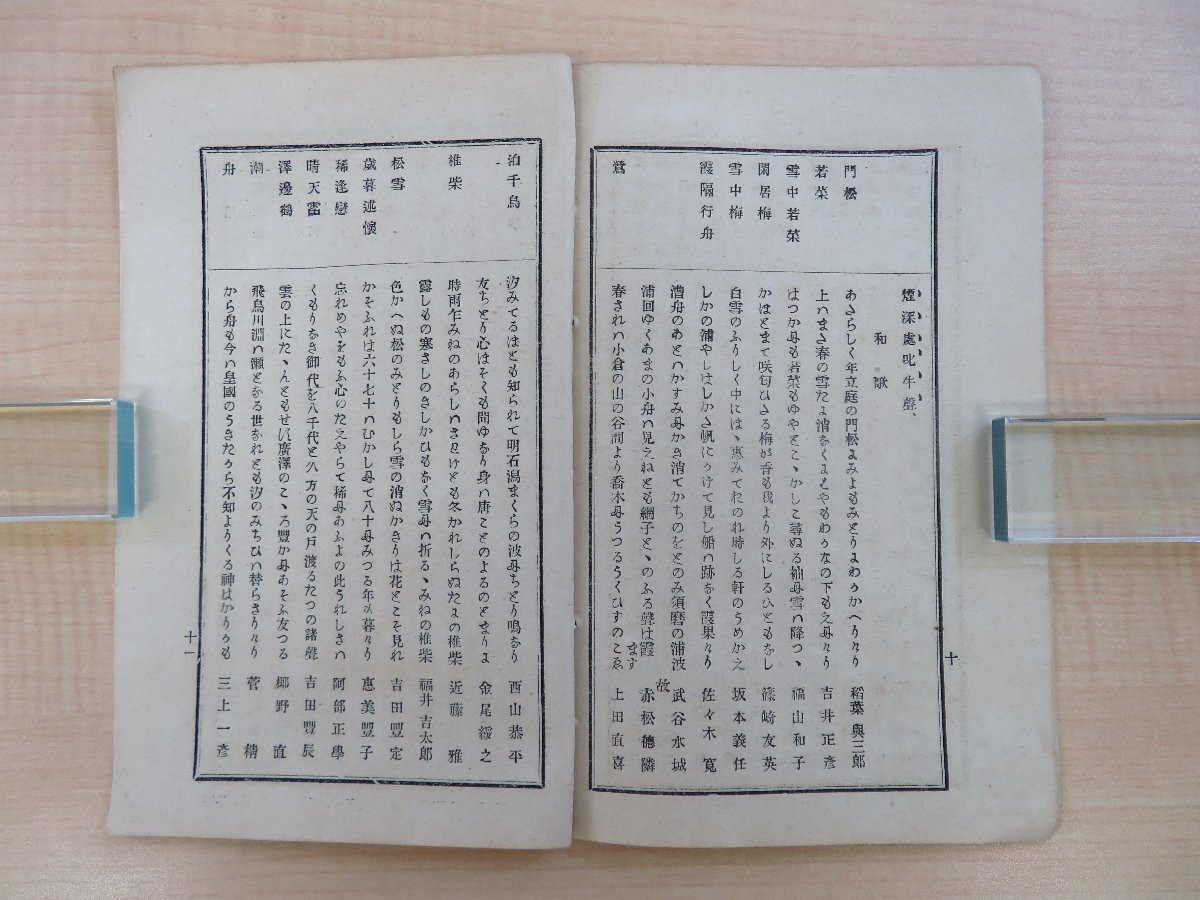 煙深處叱牛聲、
和歌
門松 あたらしく年立庭の門松よみよもみとりよわかかへりけり 稻葉與三郎
若菜 上はまた春の雪たよ消なくよもやもわかなの下もえ母けり 吉井正彦
雪中若菜 はつか母も若菜もゆやとこゝかしこ尋ぬる袖母雪ハ降つゝ 福山和子
閑居梅 かはとまて咲匂ひたる梅が香も我より外にしるひともなし 篠崎友英
雪中梅 白雪のふりしく中にはゝ惠みておのれ時しる軒のうめかえ 坂本義任
霞隔行舟 しかの浦やしはしかた帆にかけて見し船ハ跡なく霞果けり 佐々木寛
漕舟のあとハかすみ母かき消てかちのをとのみ須磨の浦波 武谷水城
浦回ゆくあまの小舟ハ見えねとも網子とゝのふる聲は霞ます 故赤松德隣
鶯 春されハ小倉の山の谷間より喬木母うつるうくひすのこゑ 上田直喜
十
泊千鳥 汐みてるほとも知られて明石潟まくらの波母ちとり鳴なり 西山恭平
友ちとり心ほそくも聞ゆなり身ハ唐ことのよるのとまりよ 金尾綏之
椎柴 時雨乍みねのあらしハさむけとも冬かれしらぬたよの椎柴 近藤雅
露しもの寒さしのきしかひもなく雪母ハ折るゝみねの椎柴 福井吉太郎
松雪 色かへぬ松のみとりもしら雪の消ぬかきりは花とこそ見れ 吉田豐定
歳暮述懷 かそふれは六十七十ハむかし母て八十母みつる年も暮けり 惠美豐子
稀逢戀 忘れめやをもふ心のたえやらて稀母あふよの此うれしさハ 阿部正學
晴天鶴 くもりなき御代を八千代と久方の天の戸渡るたつの諸聲 吉田豐辰
澤邊鶴 雲の上にたゝんともせず廣澤のこゝろ豐か母あそふ友つる 梛野直
潮 飛鳥川淵ハ瀬となる世なれとも汐のみちひハ替らさりけり 菅
舟 から舟も今ハ皇國のうきたから不知よりくる神はかりかも 三上一彦
十一